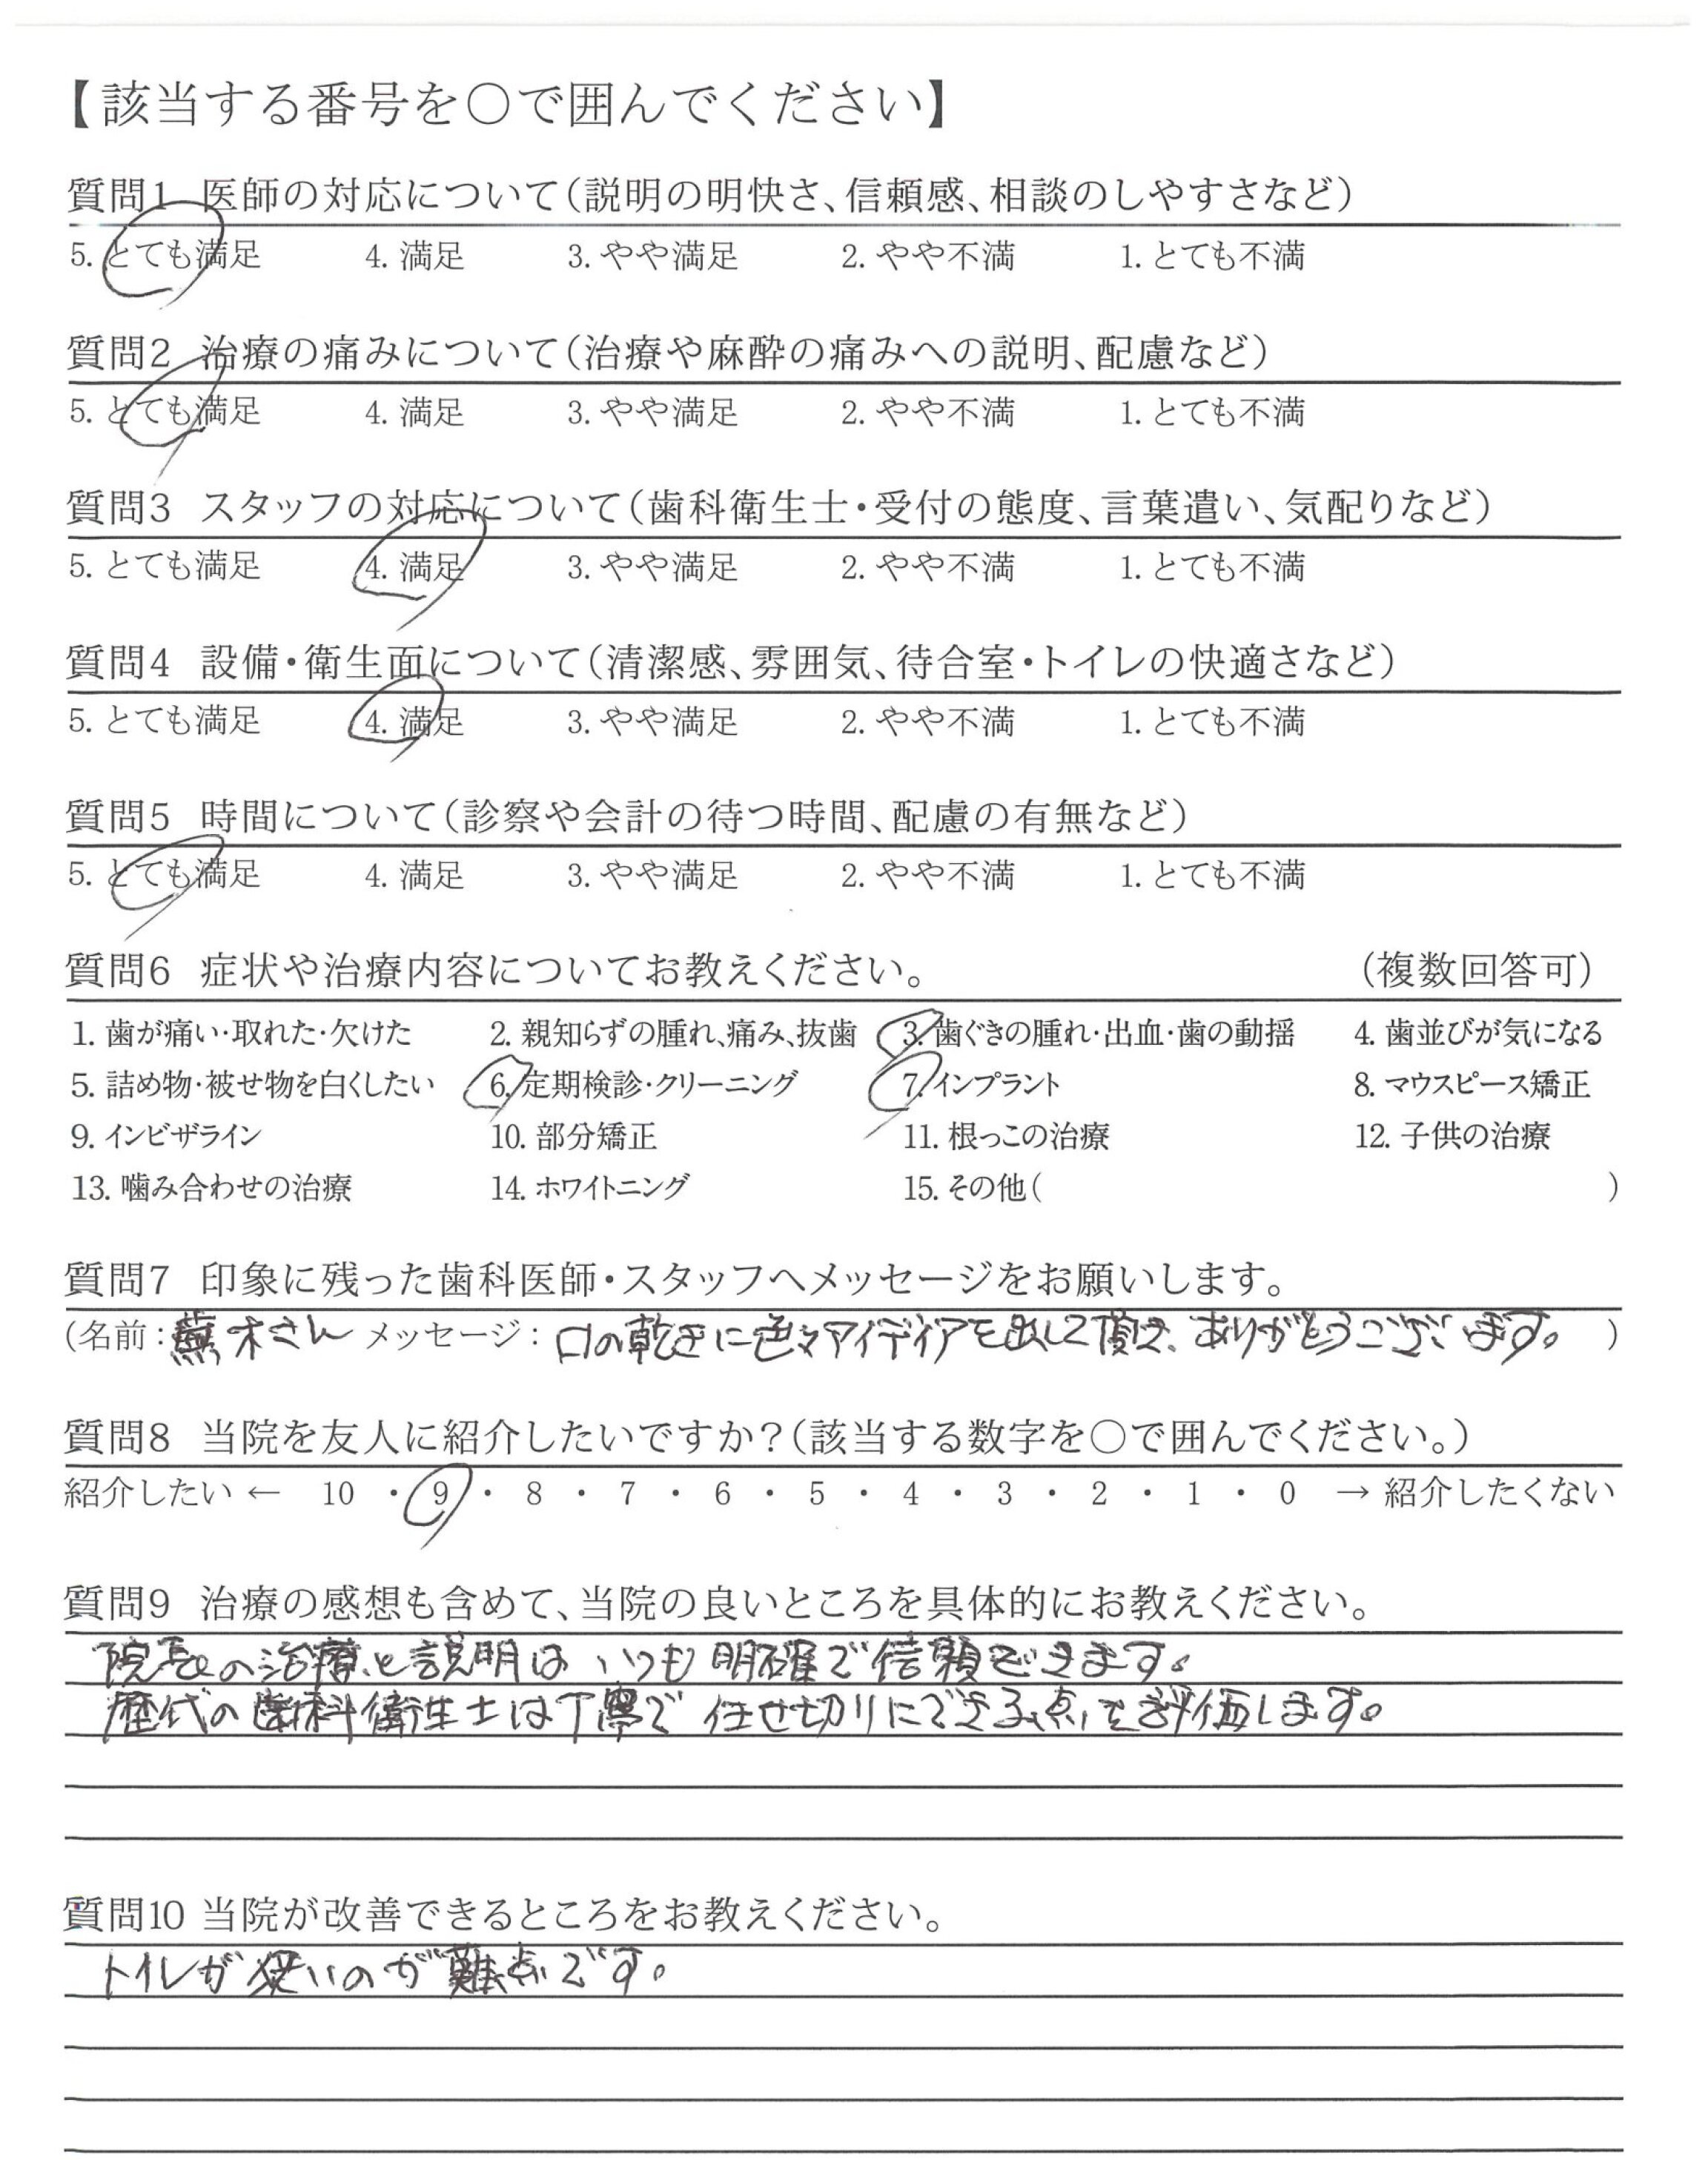 【該当する番号を○で囲んでください】
質問1 医師の対応について（説明の明快さ、信頼感、相談のしやすさなど）
5. とても満足 4. 満足 3. やや満足 2. やや不満 1. とても不満
質問2 治療の痛みについて（治療や麻酔の痛みへの説明、配慮など）
5. とても満足 4. 満足 3. やや満足 2. やや不満 1. とても不満
質問3 スタッフの対応について（歯科衛生士・受付の態度、言葉遣い、気配りなど）
5. とても満足 4. 満足 3. やや満足 2. やや不満 1. とても不満
質問4 設備・衛生面について（清潔感、雰囲気、待合室・トイレの快適さなど）
5. とても満足 4. 満足 3. やや満足 2. やや不満 1. とても不満
質問5 時間について（診察や会計の待つ時間、配慮の有無など）
5. とても満足 4. 満足 3. やや満足 2. やや不満 1. とても不満
質問6 症状や治療内容についてお教えください。 （複数回答可）
1. 歯が痛い・取れた・欠けた 2. 親知らずの腫れ、痛み、抜歯 3. 歯ぐきの腫れ・出血・歯の動揺 4. 歯並びが気になる
5. 詰め物・被せ物を白くしたい 6. 定期検診・クリーニング 7. インプラント 8. マウスピース矯正
9. インビザライン 10. 部分矯正 11. 根っこの治療 12. 子供の治療
13. 噛み合わせの治療 14. ホワイトニング 15. その他（ ）
質問7 印象に残った歯科医師・スタッフへメッセージをお願いします。
（名前： 木さん メッセージ：口の乾きに色々アイディアを出して頂き、ありがとうございます。 ）
質問8 当院を友人に紹介したいですか？（該当する数字を○で囲んでください。）
紹介したい ← 10 ・ 9 ・ 8 ・ 7 ・ 6 ・ 5 ・ 4 ・ 3 ・ 2 ・ 1 ・ 0 → 紹介したくない
質問9 治療の感想も含めて、当院の良いところを具体的にお教えください。
院長の治療と説明は いつも 明確で信頼できます。
歴代の歯科衛生士は丁寧で 任せ切りにできる点を評価します。
質問10 当院が改善できるところをお教えください。
トイレが狭いのが難点です。